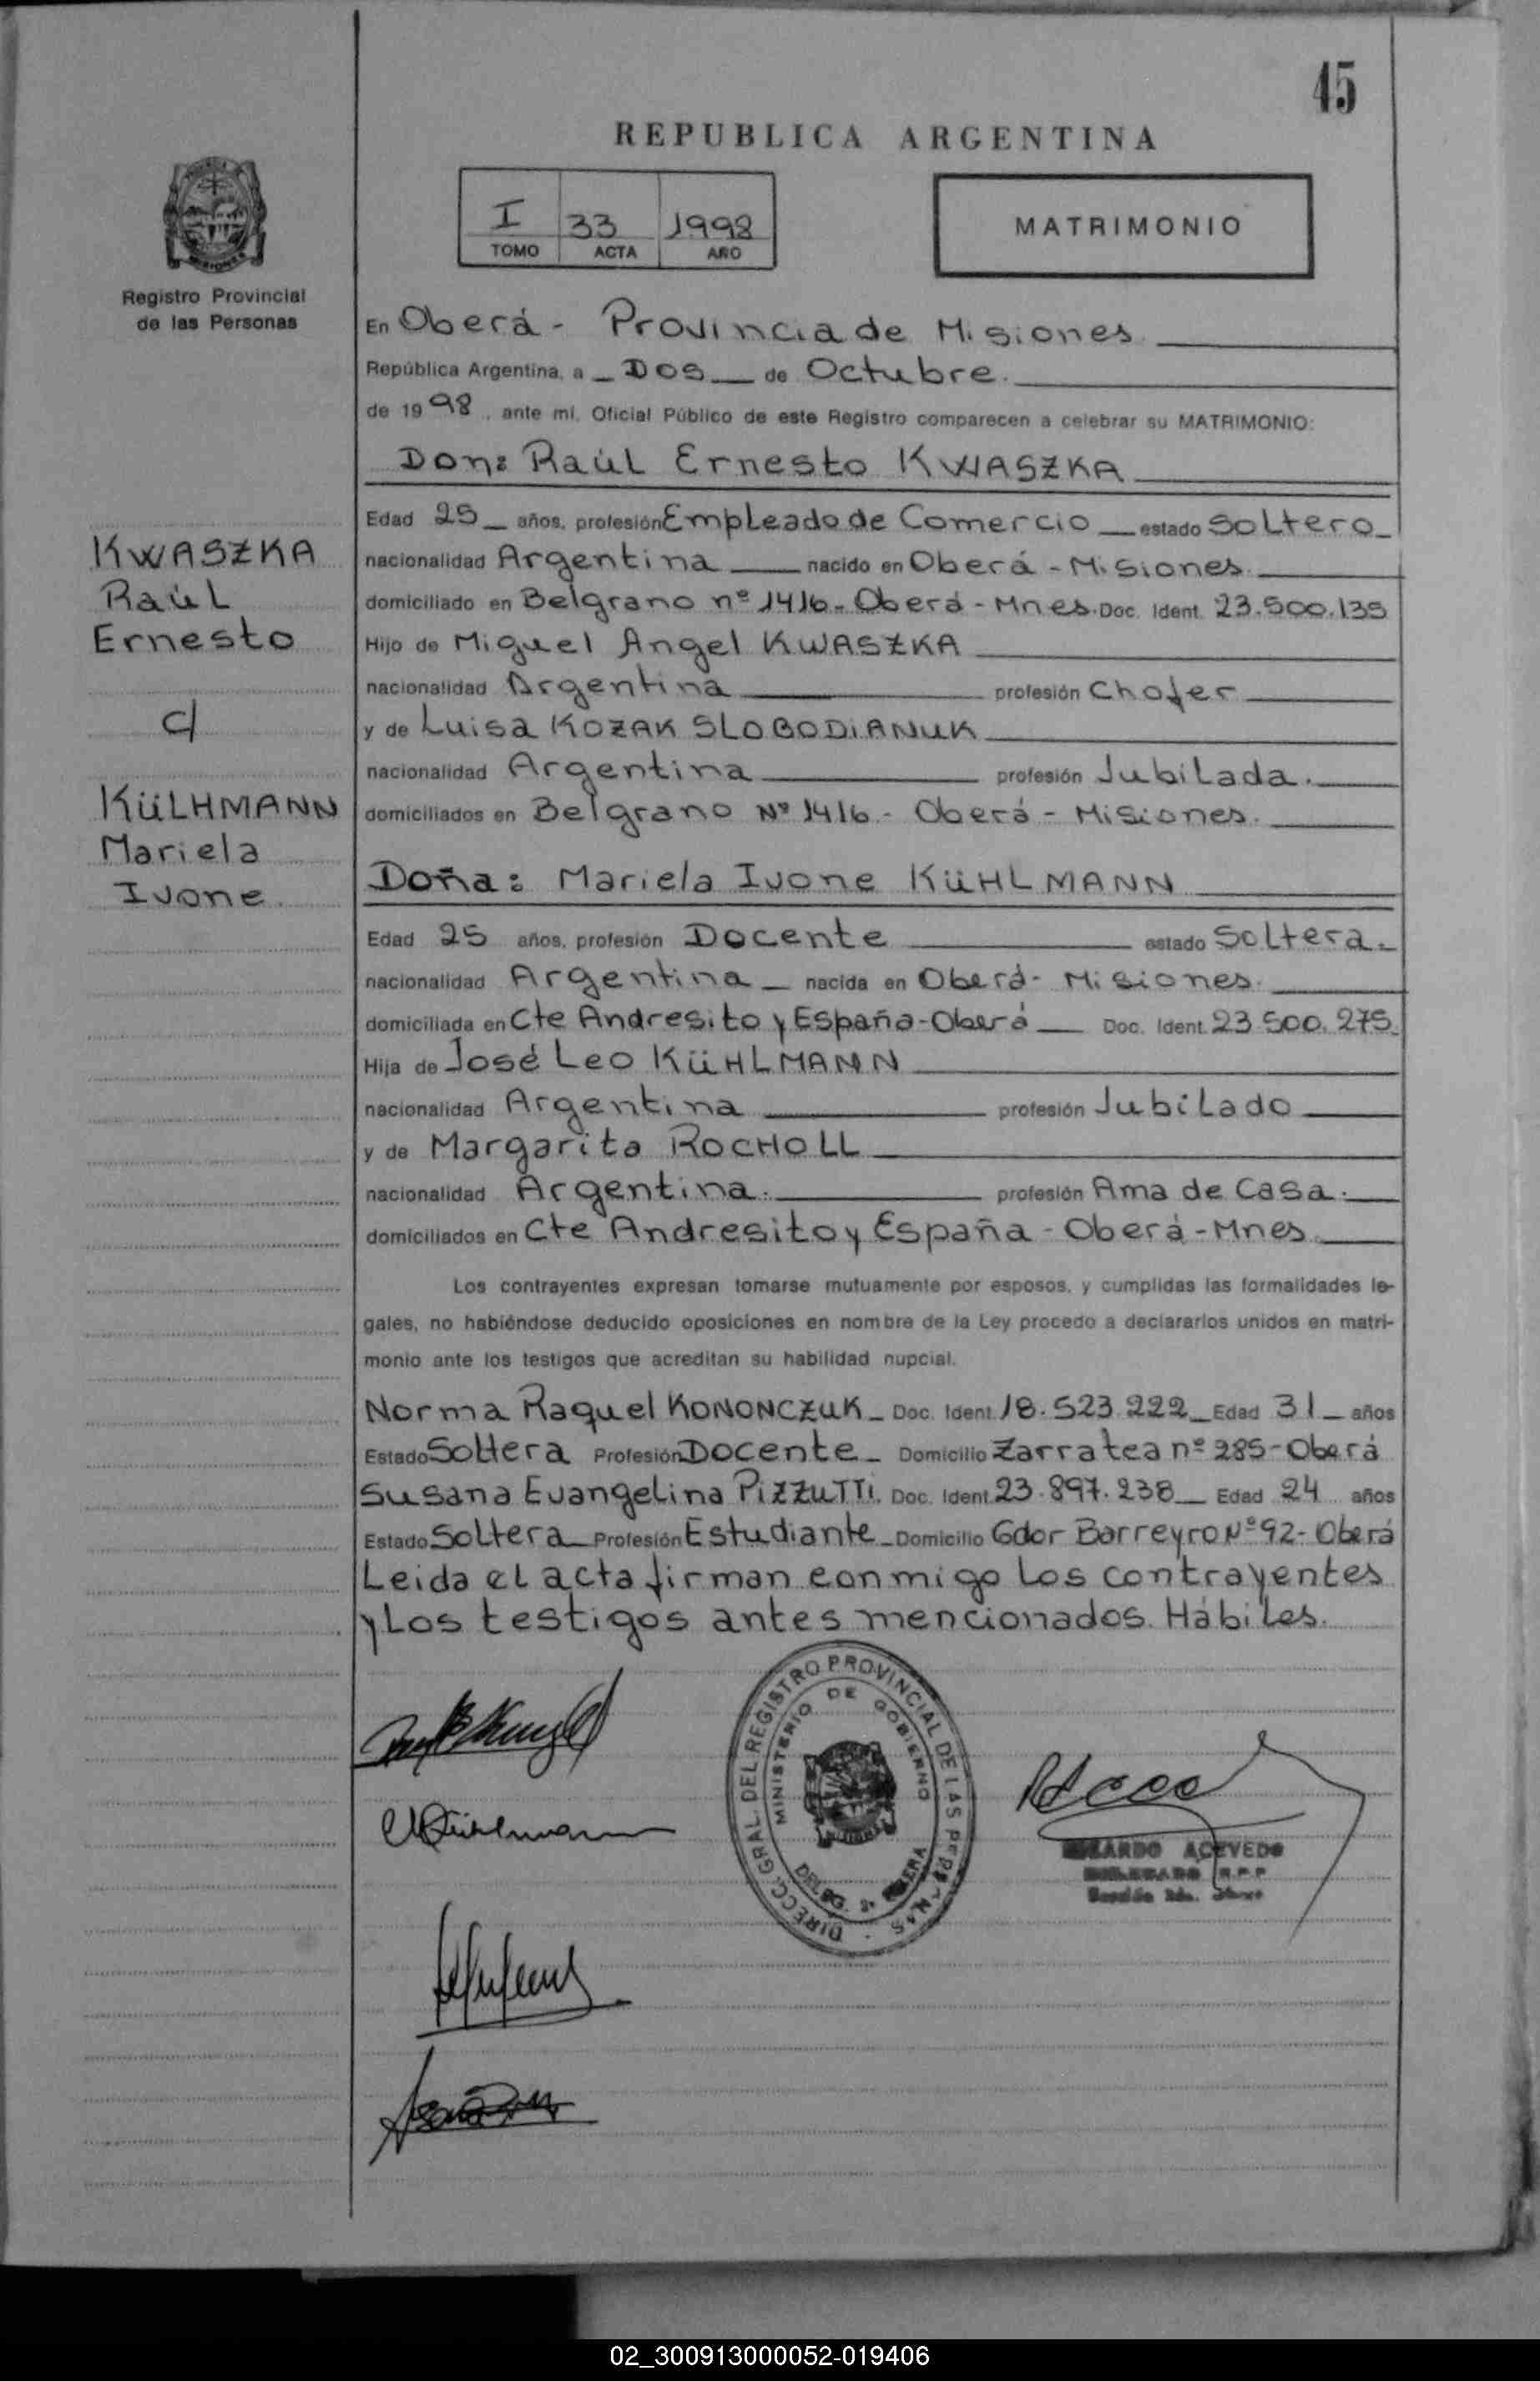 45
REPUBLICA ARGENTINA
I 33 1998
TOMO ACTA AÑO
MATRIMONIO
Registro Provincial
de las Personas
En Oberá - Provincia de Misiones
República Argentina, a Dos de Octubre.
de 1998, ante mí, Oficial Público de este Registro comparecen a celebrar su MATRIMONIO:
Don: Raúl Ernesto KWASZKA
Edad 25 años, profesión Empleado de Comercio estado Soltero
nacionalidad Argentina nacido en Oberá - Misiones
domiciliado en Belgrano nº 1416 - Oberá - Mnes. Doc. Ident. 23.500.135
Hijo de Miguel Angel KWASZKA
nacionalidad Argentina profesión Chofer
y de Luisa KOZAK SLOBODIANUK
nacionalidad Argentina profesión Jubilada.
domiciliados en Belgrano Nº 1416 - Oberá - Misiones.
Doña: Mariela Ivone KüHLMANN
Edad 25 años, profesión Docente estado Soltera.
nacionalidad Argentina nacida en Oberá - Misiones.
domiciliada en Cte Andresito y España - Oberá Doc. Ident. 23.500.275
Hija de José Leo KüHLMANN
nacionalidad Argentina profesión Jubilado
y de Margarita ROCHOLL
nacionalidad Argentina. profesión Ama de Casa.
domiciliados en Cte Andresito y España - Oberá - Mnes.
Los contrayentes expresan tomarse mutuamente por esposos, y cumplidas las formalidades le-
gales, no habiéndose deducido oposiciones en nombre de la Ley procedo a declararlos unidos en matri-
monio ante los testigos que acreditan su habilidad nupcial.
Norma Raquel KONONCZUK Doc. Ident. 18.523.222 Edad 31 años
Estado Soltera Profesión Docente Domicilio Zarratea nº 285 - Oberá
Susana Evangelina PIZZUTTI. Doc. Ident. 23.897.238 Edad 24 años
Estado Soltera Profesión Estudiante Domicilio Gdor Barreyro Nº 92 - Oberá
Leida el acta firman conmigo los contrayentes
y Los testigos antes mencionados. Hábiles.
KWASZKA
Raúl
Ernesto
c/
KüLHMANN
Mariela
Ivone.
DIRECC. GRAL. DEL REGISTRO PROVINCIAL DE LAS PERSONAS
MINISTERIO DE GOBIERNO
ACEVEDO
02_300913000052-019406